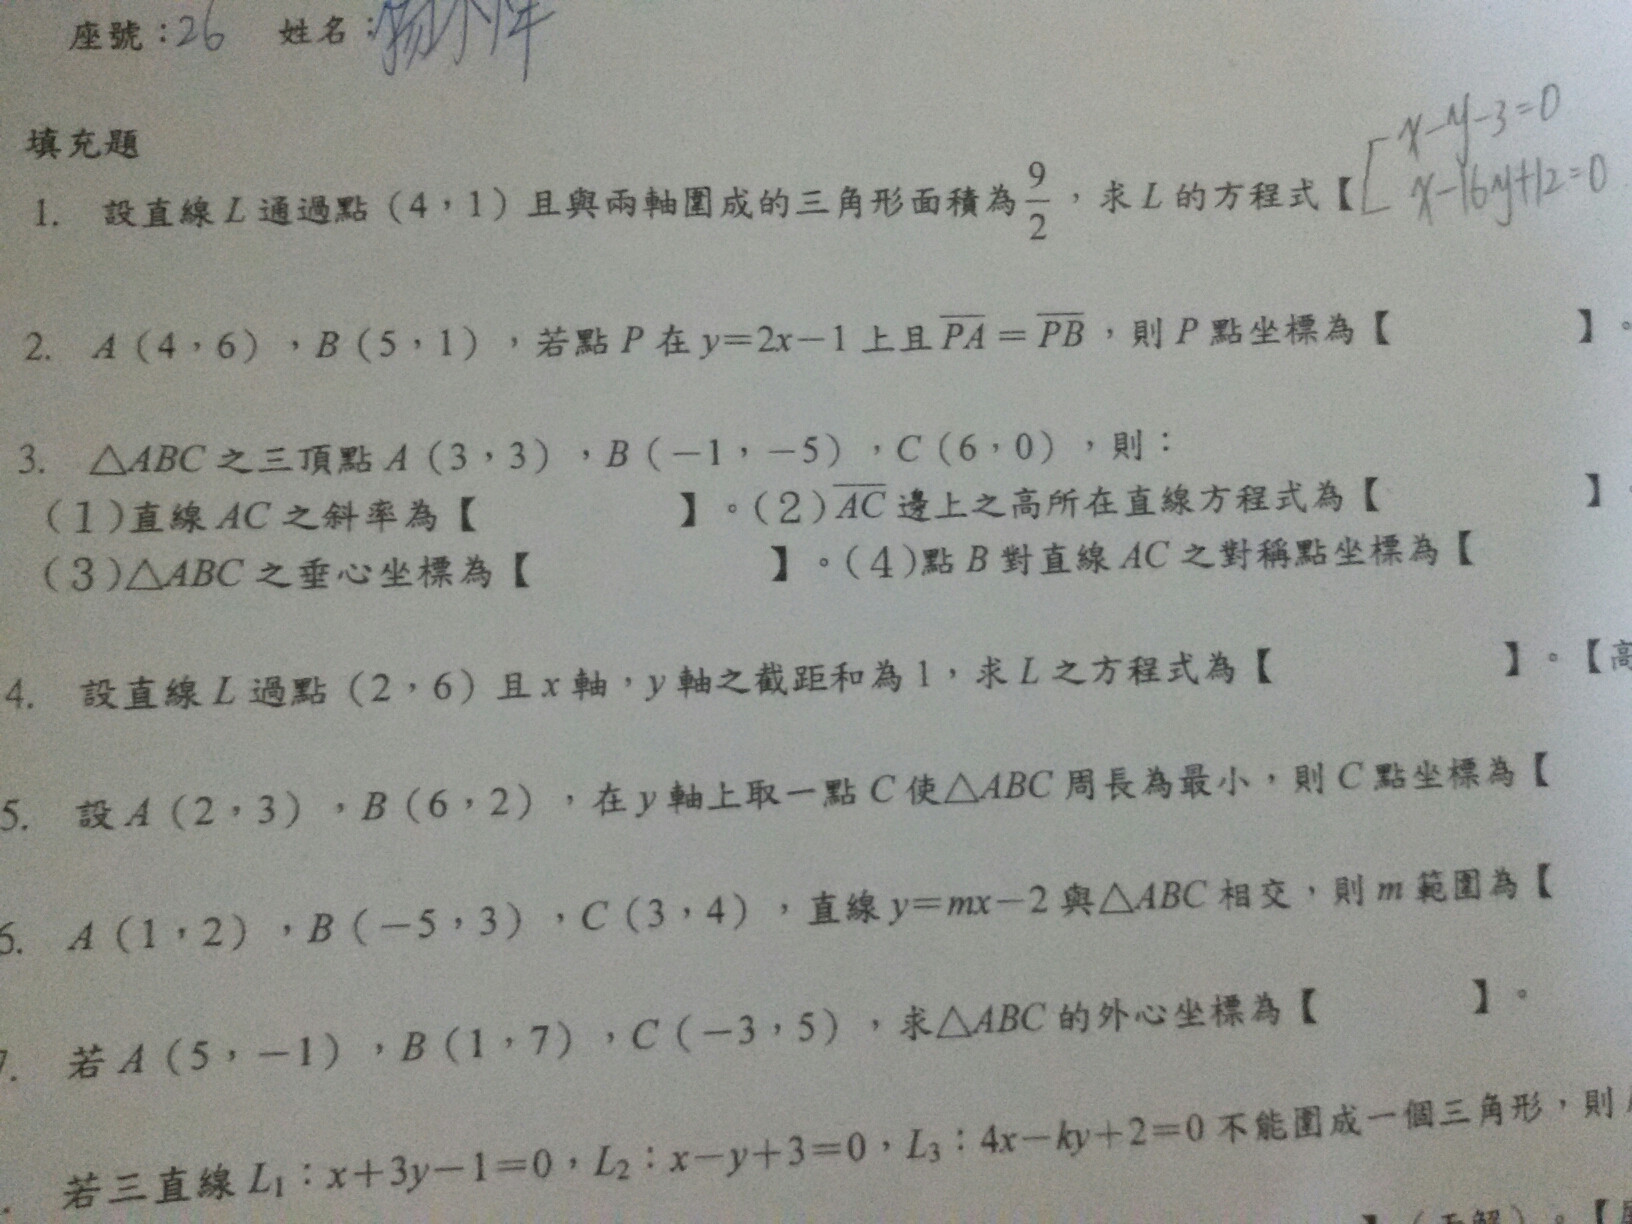 座號:26 姓名:
填充題
x-y-3=0
x-16y+12=0
1. 設直線 L 通過點(4,1)且與兩軸圍成的三角形面積為 9/2,求 L 的方程式【
2. A(4,6),B(5,1),若點 P 在 y=2x-1 上且 \overline{PA} = \overline{PB},則 P 點坐標為【 】。
3. △ABC 之三頂點 A(3,3),B(-1,-5),C(6,0),則:
(1)直線 AC 之斜率為【 】。(2)\overline{AC} 邊上之高所在直線方程式為【 】。
(3)△ABC 之垂心坐標為【 】。(4)點 B 對直線 AC 之對稱點坐標為【
4. 設直線 L 過點(2,6)且 x 軸,y 軸之截距和為 1,求 L 之方程式為【 】。【高
5. 設 A(2,3),B(6,2),在 y 軸上取一點 C 使△ABC 周長為最小,則 C 點坐標為【
6. A(1,2),B(-5,3),C(3,4),直線 y=mx-2 與△ABC 相交,則 m 範圍為【
7. 若 A(5,-1),B(1,7),C(-3,5),求△ABC 的外心坐標為【 】。
若三直線 L₁:x+3y-1=0,L₂:x-y+3=0,L₃:4x-ky+2=0 不能圍成一個三角形,則